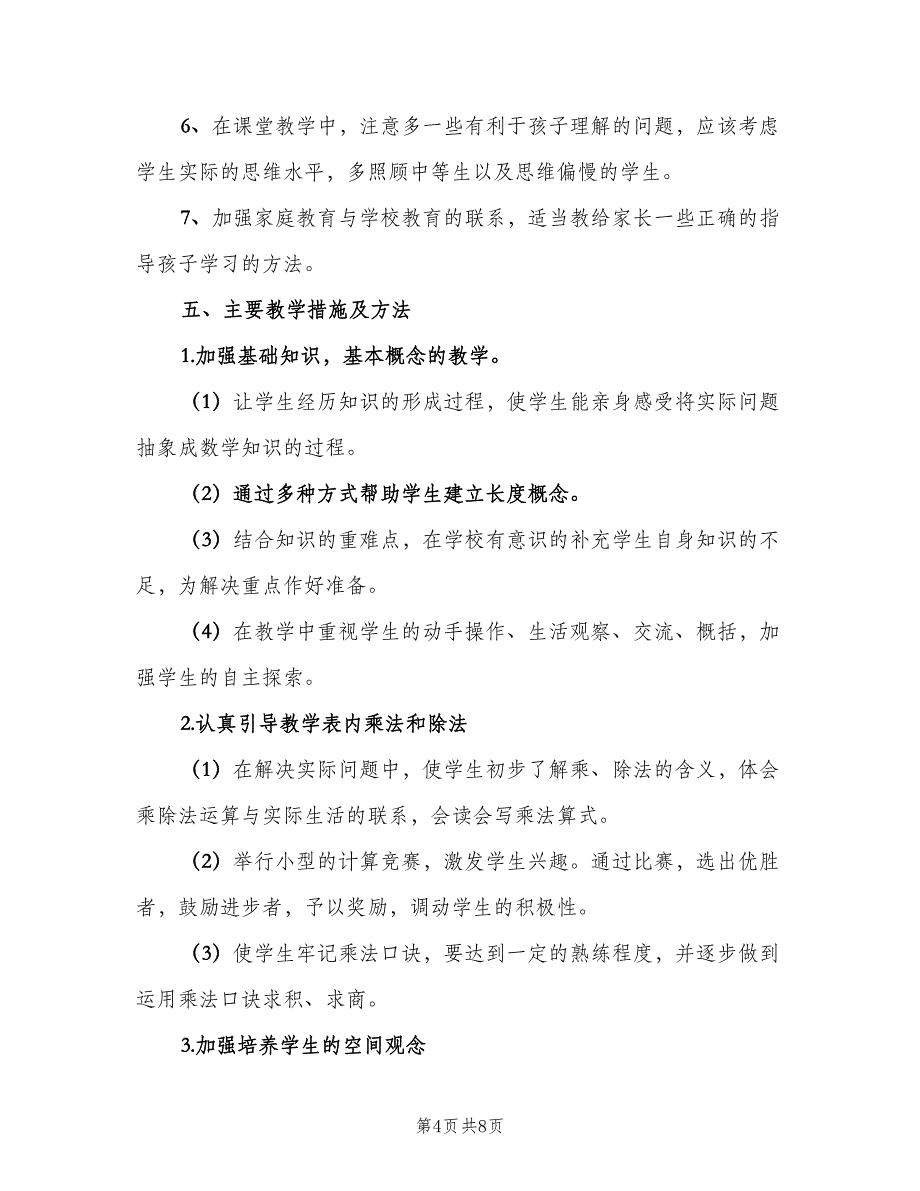 6、在课堂教学中，注意多一些有利于孩子理解的问题，应该考虑
学生实际的思维水平，多照顾中等生以及思维偏慢的学生。
7、加强家庭教育与学校教育的联系，适当教给家长一些正确的指
导孩子学习的方法。
五、主要教学措施及方法
1.加强基础知识，基本概念的教学。
（1）让学生经历知识的形成过程，使学生能亲身感受将实际问题
抽象成数学知识的过程。
（2）通过多种方式帮助学生建立长度概念。
（3）结合知识的重难点，在学校有意识的补充学生自身知识的不
足，为解决重点作好准备。
（4）在教学中重视学生的动手操作、生活观察、交流、概括，加
强学生的自主探索。
2.认真引导教学表内乘法和除法
（1）在解决实际问题中，使学生初步了解乘、除法的含义，体会
乘除法运算与实际生活的联系，会读会写乘法算式。
（2）举行小型的计算竞赛，激发学生兴趣。通过比赛，选出优胜
者，鼓励进步者，予以奖励，调动学生的积极性。
（3）使学生牢记乘法口诀，要达到一定的熟练程度，并逐步做到
运用乘法口诀求积、求商。
3.加强培养学生的空间观念
第4页 共8页